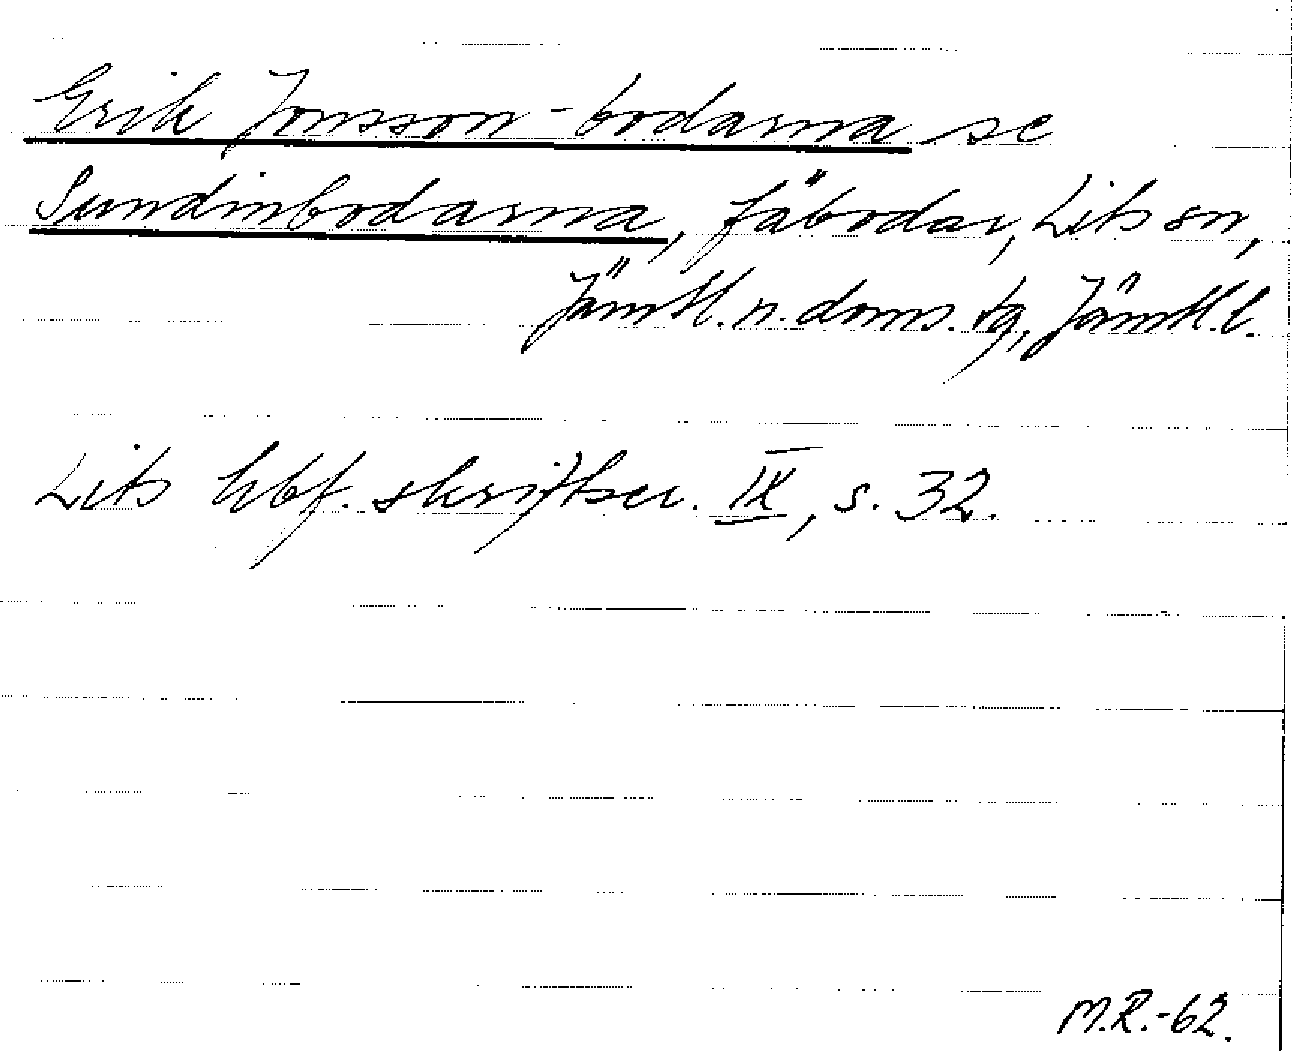 Erik Jonsson-bodarna se
Sundinbodarna, fäbodar, Lits sn,
Jämtl. n. doms. tg, Jämtl. l.
Lits hbf. skriftser. IX, s. 32.
M.R.-62.